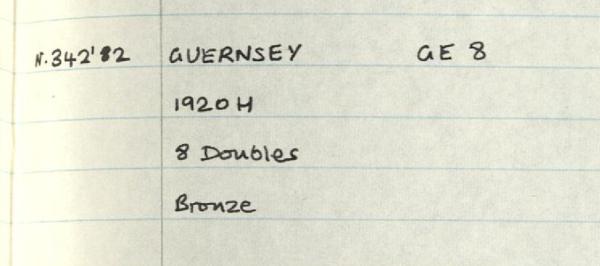 N.342'82 GUERNSEY GE 8
1920 H
8 Doubles
Bronze